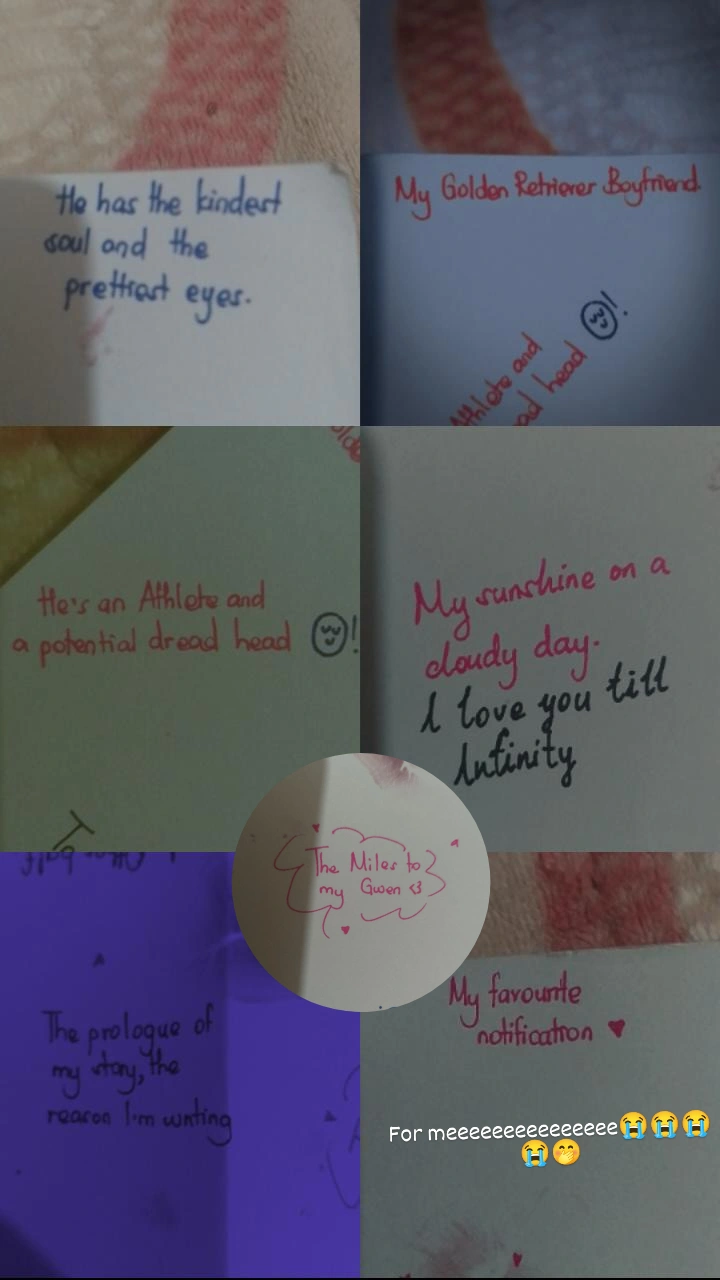 He has the kindest
soul and the
prettiest eyes.
My Golden Retriever Boyfriend
Athlete and
ad head
He's an Athlete and
a potential dread head !
My sunshine on a
cloudy day.
I love you till
Infinity
The Miles to
my Gwen <3
The prologue of
my story, the
reason I'm writing
My favourite
notification ♥
For meeeeeeeeeeeeeee😭😭😭
😭🤭